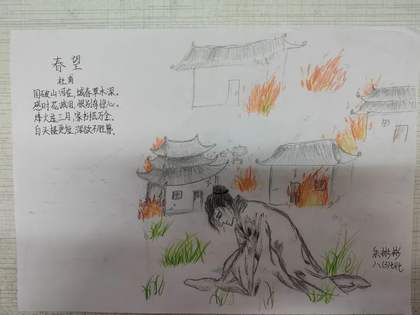 春望
杜甫
国破山河在，城春草木深。
感时花溅泪，恨别鸟惊心。
烽火连三月，家书抵万金。
白头搔更短，浑欲不胜簪。
彬彬